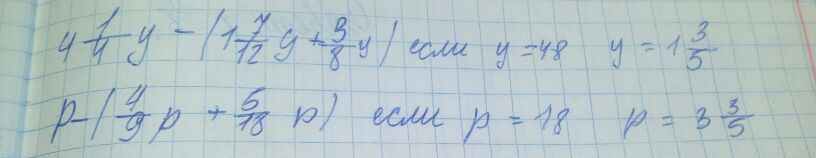 4 1/4 y - (1 7/12 y + 3/8 y) если y = 48 y = 1 3/5
p - (4/9 p + 5/18 p) если p = 18 p = 3 3/5